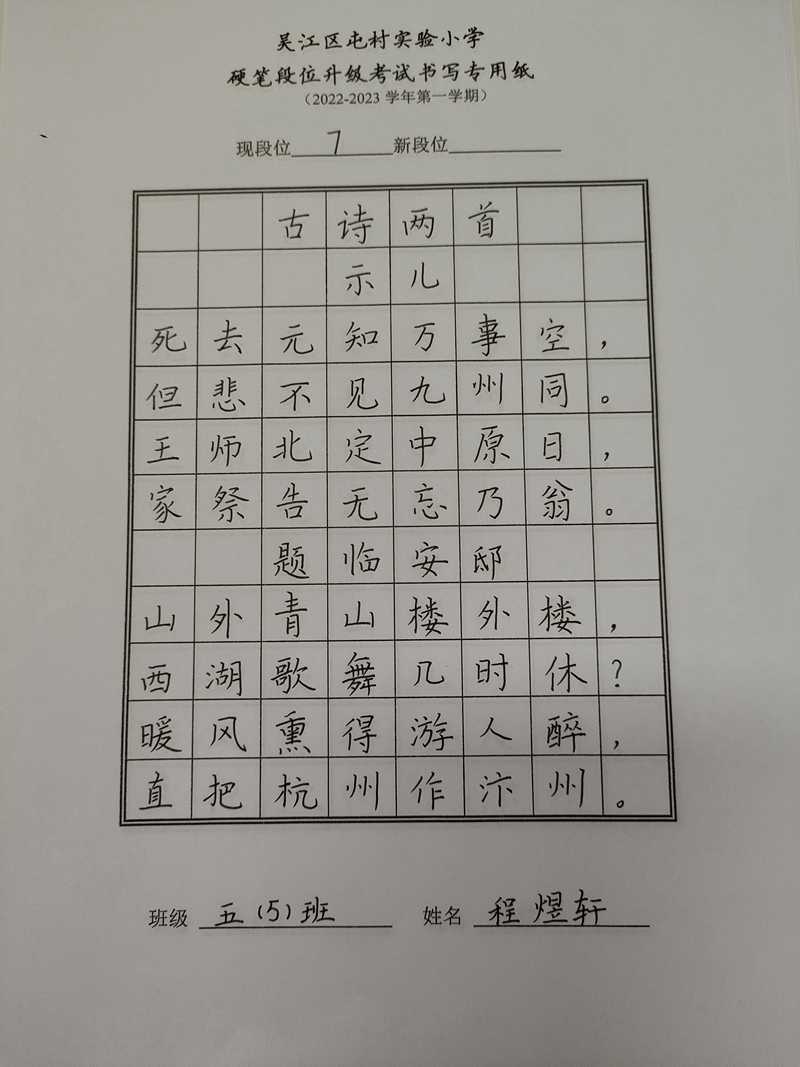 吴江区屯村实验小学
硬笔段位升级考试书写专用纸
（2022-2023 学年第一学期）
现段位 7 新段位
古诗两首
示儿
死去元知万事空，
但悲不见九州同。
王师北定中原日，
家祭告无忘乃翁。
题临安邸
山外青山楼外楼，
西湖歌舞几时休？
暖风熏得游人醉，
直把杭州作汴州。
班级 五（5）班 姓名 程煜轩